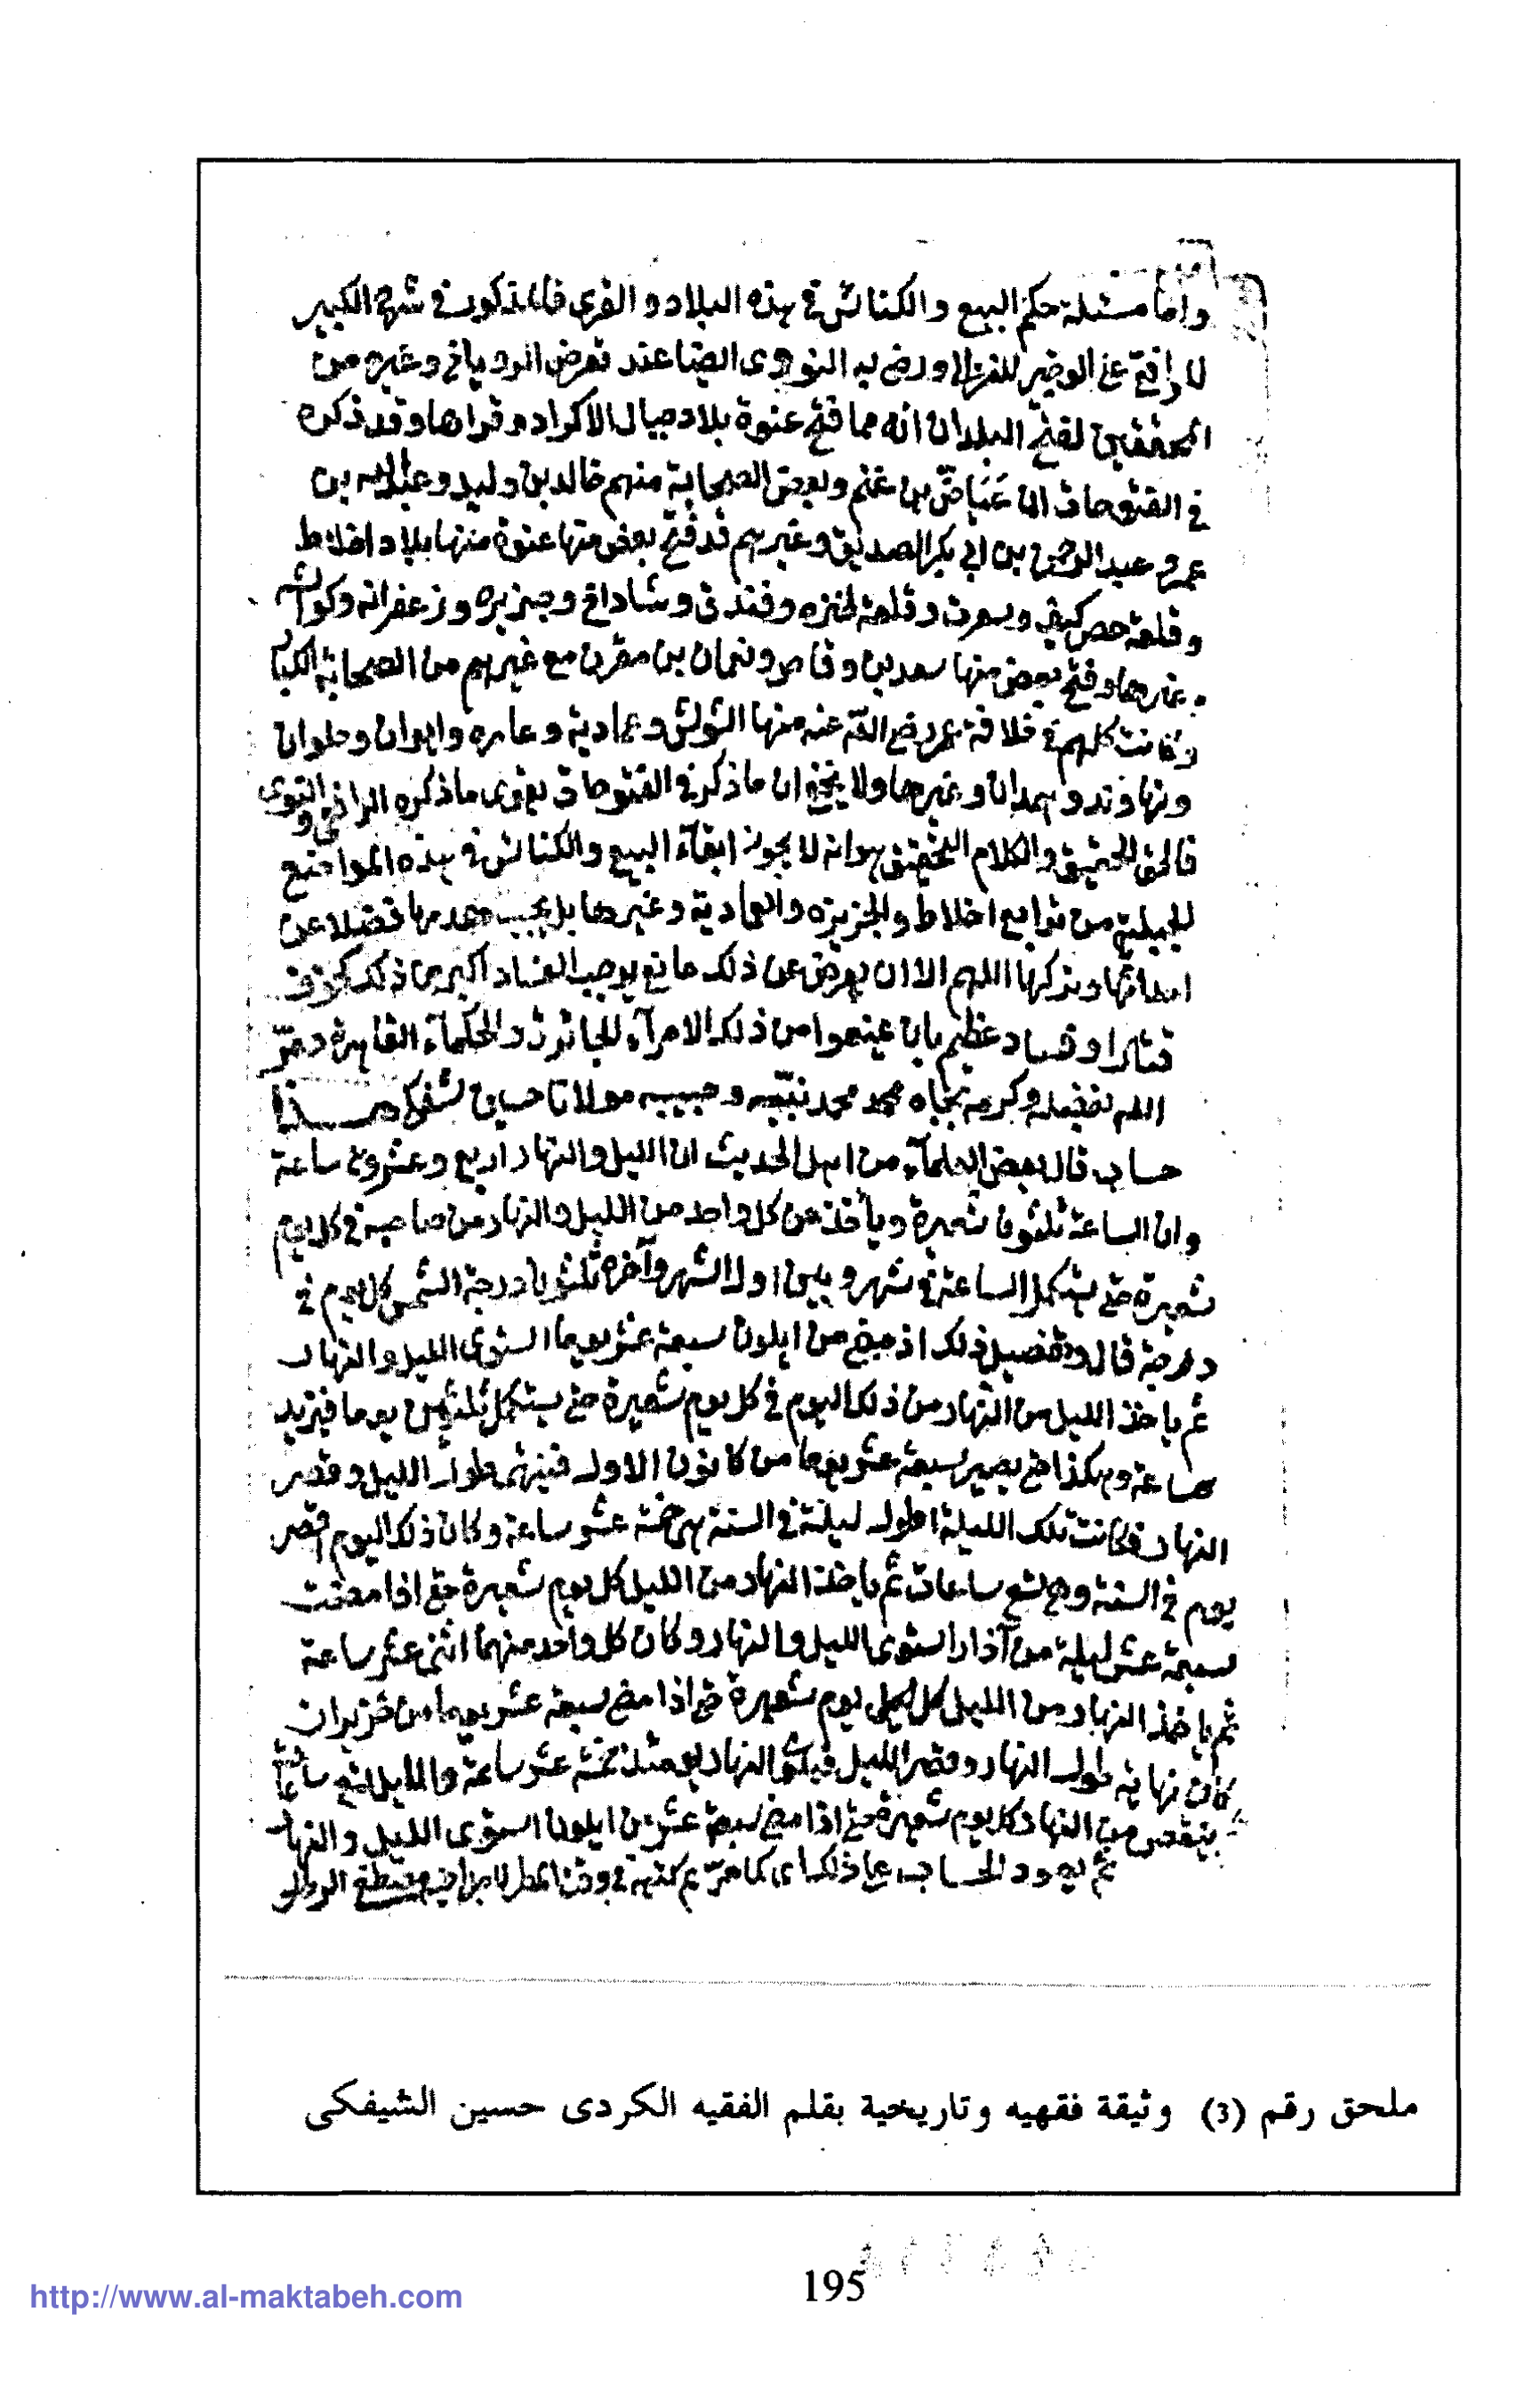 واما مسئلة حكم البيع والكنائس في هذه البلاد والقرى فالمذكور في شرح الكبير
للرافعي على الوجيز للغزالي ورضى به النووي ايضا عند تعرض الروياني وغيره من
المحققين لفتح البلدان انه مما فتح عنوة بلاد جبال الاكراد وقراها وقد ذكره
في الفتوحات ان عياض بن غنم وبعض الصحابة منهم خالد بن وليد وعبدالله بن
عمر وعبد الرحمن بن ابي بكر الصديق وغيرهم قد فتح بعض منها عنوة منها بلاد اخلاط
وقلعة حصن كيف وسعرت وقلعة وفندق وشاداخ وجزيره وزعفرانه
وغيرها وفتح بعض منها سعد بن وقاص ونعمان بن مقرن مع غيرهم من الصحابة الكبار
وكانت كلهم في خلافة عمر رضي الله عنه منها الشوش وعمادية وعامره وايوان وحلوان
ونهاوند وهمدان وغيرها ولا يخفى ان ما ذكر في الفتوحات يقوى ما ذكره الرافعي و النووى
فالحق الحقيق والكلام التحقيق هو انه لا يجوز ابقاء البيع والكنائس في هذه المواضع
الجبلية من توابع اخلاط والجزيره والعمادية وغيرها بل يجب هدمها فضلا عن
احداثها وتركها اللهم الا ان يعرض عن ذلك مانع يوجب الفساد اكبر من ذلك كخوف
قتال او فساد عظيم بان يمنعوا من ذلك الامراء الجائرة والحكماء القاهرة
الله بفضله وكرمه بجاه محمد محمد نبيه وحبيبه مولانا حسين شفكي هذا
حساب قال بعض العلماء من اهل الحديث ان الليل والنهار اربع وعشرون ساعة
وان الساعة ثلثون شعيرة ويأخذ من كل واحد من الليل والنهار من صاحبه في كل يوم
شعيرة حتى يستكمل الساعة في شهر وبين اول الشهر وآخره ثلثون درجة الشمس كل يوم في
درجة قال وتفصيل ذلك اذ مضى من ايلول سبعة عشر يوما استوى الليل والنهار
ثم ياخذ الليل من النهار من ذلك اليوم في كل يوم شعيرة حتى يستكمل ثلثين يوما فيزيد
ساعة وهكذا حتى يصير سبعة عشر يوما من كانون الاول فينتهى طول الليل وقصر
النهار فكانت تلك الليلة اطول ليلة في السنة هي خمسة عشر ساعة وكان ذلك اليوم اقصر
يوم في السنة وهي تسع ساعات ثم ياخذ النهار من الليل كل يوم شعيرة حتى اذا مضت
سبعة عشر ليلة من آذار استوى الليل والنهار وكان كل واحد منهما اثنى عشر ساعة
ثم ياخذ النهار من الليل كل يوم شعيرة حتى اذا مضى سبعة عشر يوما من حزيران
كان نهاية طول النهار وقصر الليل فيكون النهار يومئذ خمسة عشر ساعة والليل تسع ساعات
ينقص من النهار كل يوم شعيرة حتى اذا مضى سبعة عشر من ايلول استوى الليل والنهار
ثم يعود الحساب على ذلك اى كما مر
ملحق رقم (3) وثيقة فقهيه وتاريخية بقلم الفقيه الكردى حسين الشيفكى
195
http://www.al-maktabeh.com